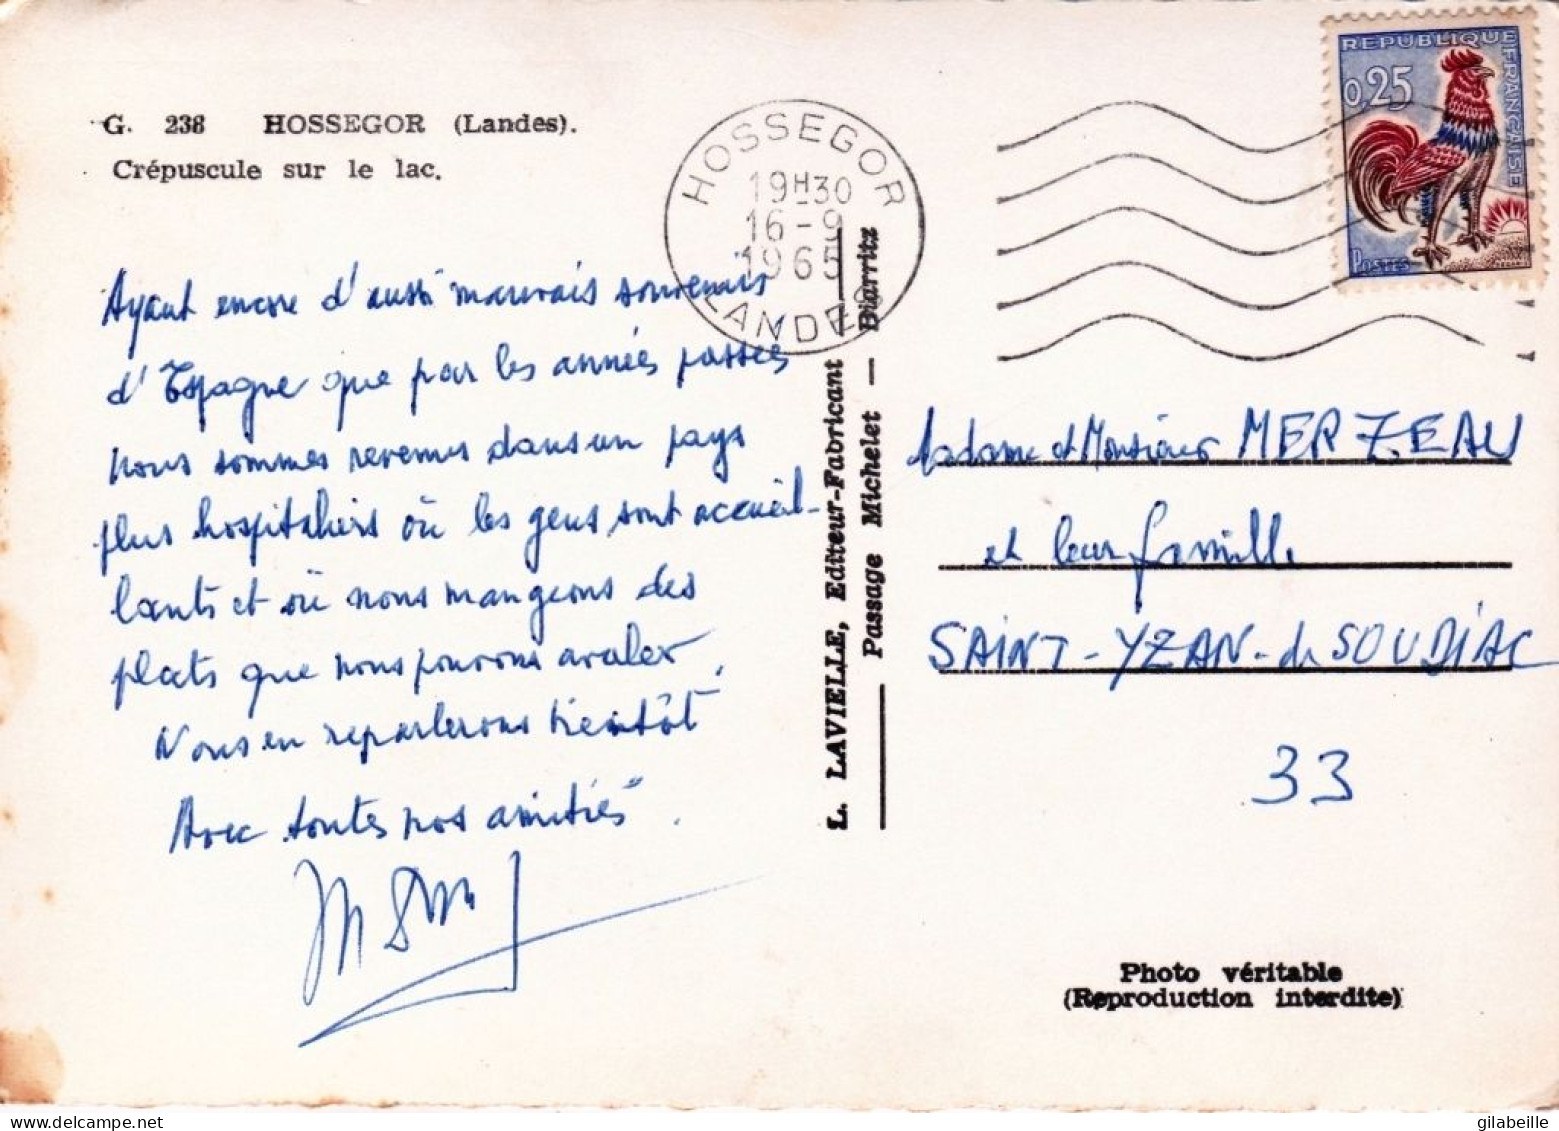 G. 238 HOSSEGOR (Landes).
Crépuscule sur le lac.
HOSSEGOR
19H30
16-9
1965
LANDES
REPUBLIQUE FRANÇAISE
0,25
POSTES
Ayant encore d'aussi mauvais souvenirs
d'Espagne que par les années passées
nous sommes revenus dans un pays
plus hospitaliers où les gens sont accueil-
lants et où nous mangeons des
plats que nous pouvons avaler.
Nous en reparlerons bientôt
Avec toutes nos amitiés.
L. LAVIELLE, Editeur-Fabricant
Passage Michelet — Biarritz
Madame et Monsieur MERZEAU
et leur famille
SAINT-YZAN-de SOUDIAC
33
Photo véritable
(Reproduction interdite)
gilabeille